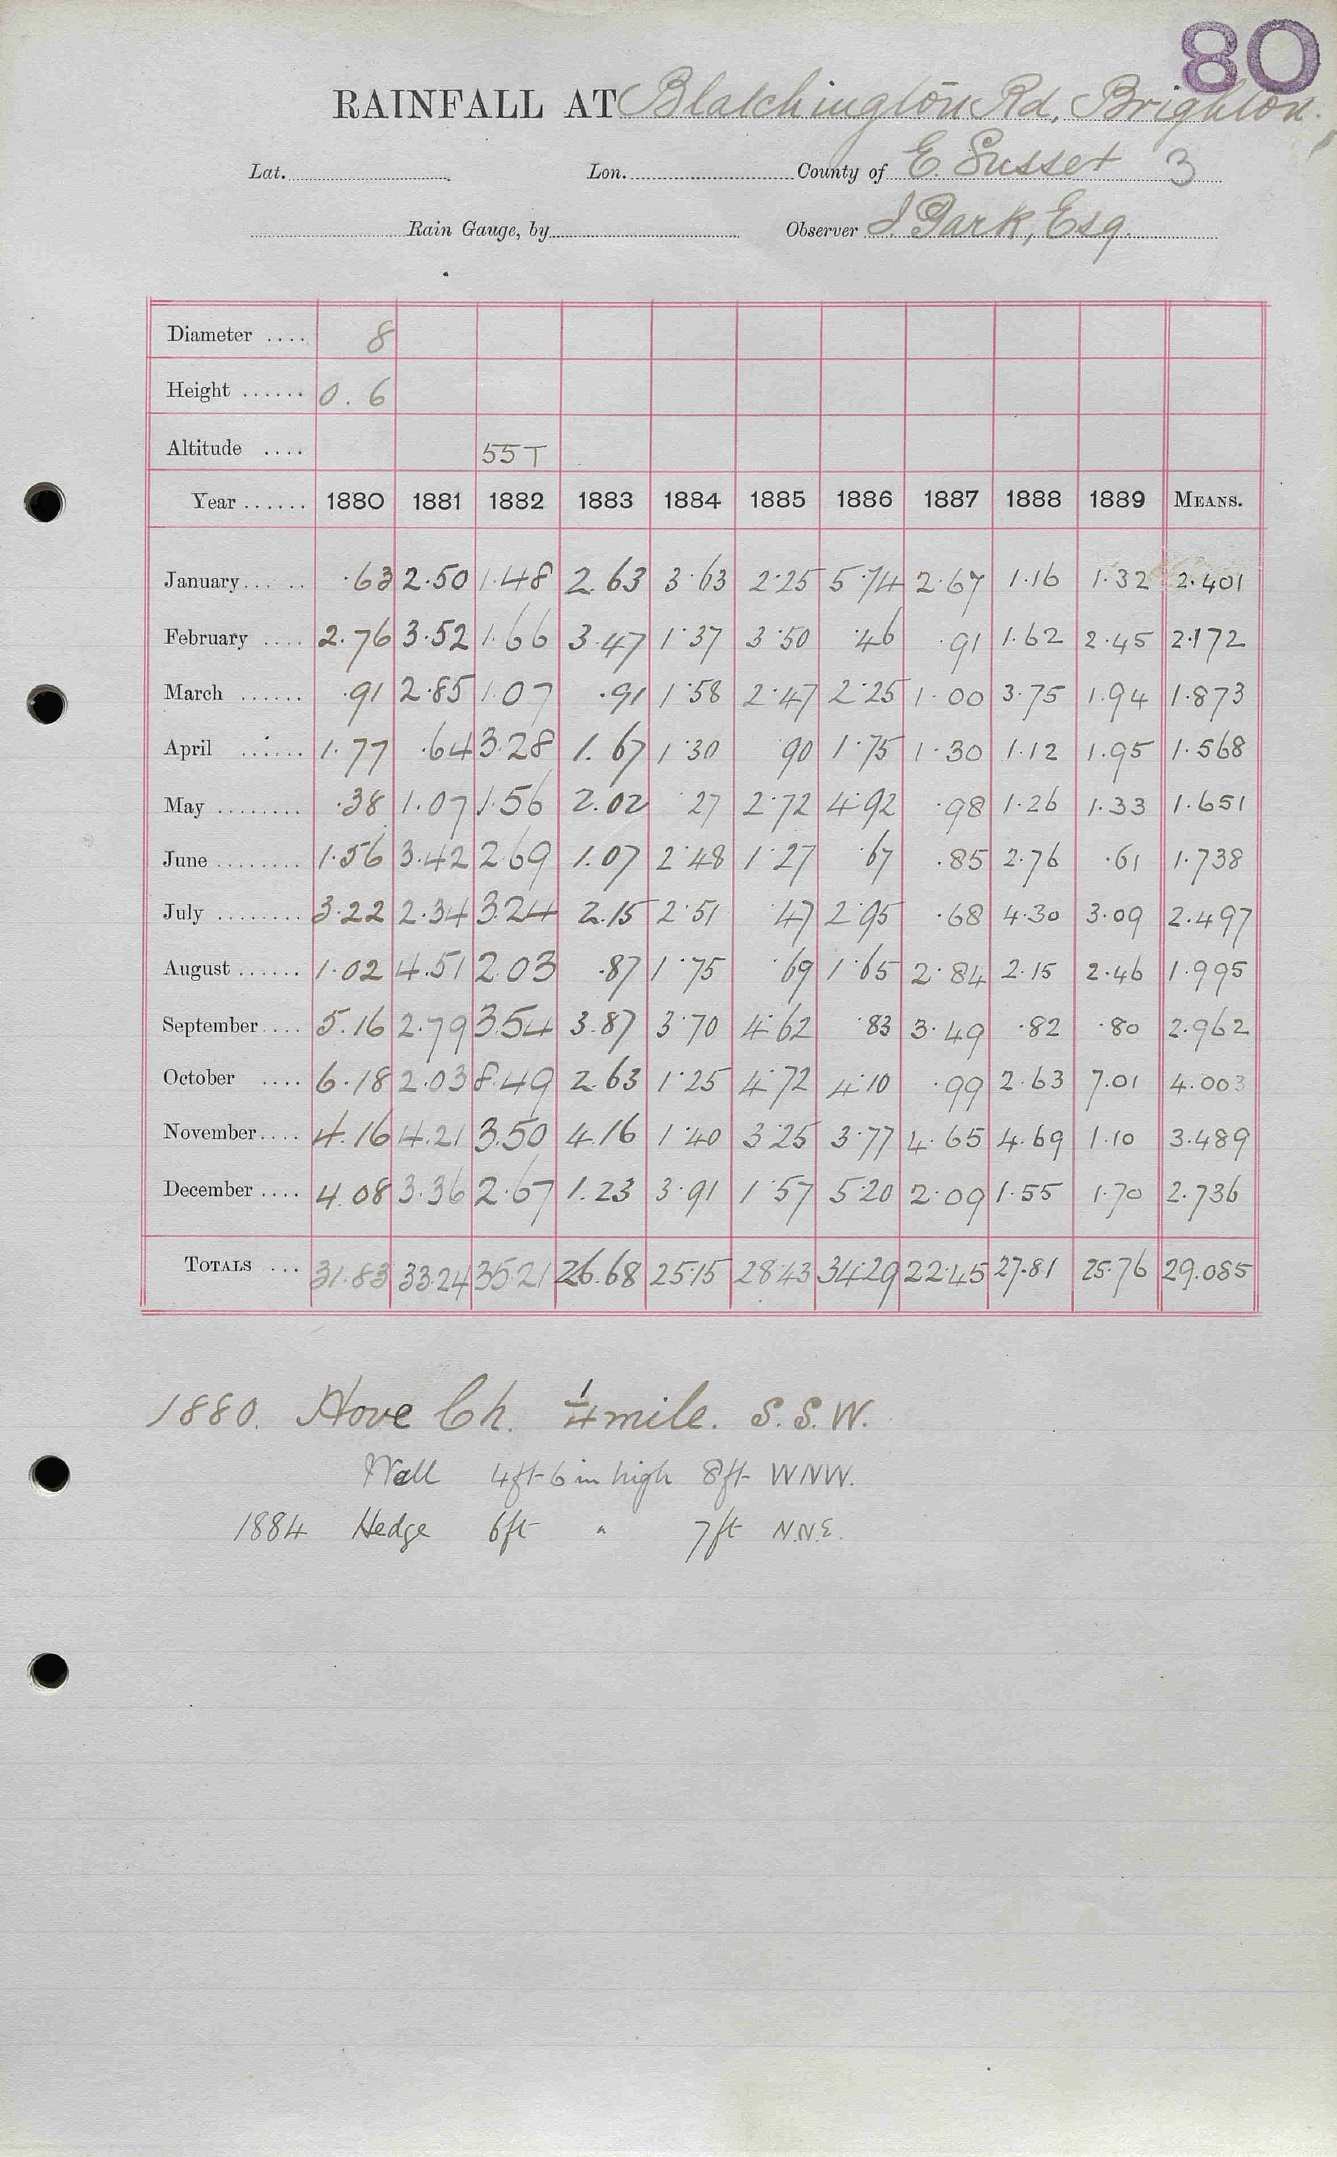 80
RAINFALL AT Blatchington Rd, Brighton.
Lat. Lon. County of E. Sussex 3
Rain Gauge, by Observer J. Park, Esq.
Diameter .... 8
Height ...... 0.6
Altitude .... 55 T
Year ...... 1880 1881 1882 1883 1884 1885 1886 1887 1888 1889 MEANS.
January... .. .63 2.50 1.48 2.63 3.63 2.25 5.74 2.67 1.16 1.32 2.401
February .... 2.76 3.52 1.66 3.47 1.37 3.50 .46 .91 1.62 2.45 2.172
March ...... .91 2.85 1.07 .91 1.58 2.47 2.25 1.00 3.75 1.94 1.873
April ...... 1.77 .64 3.28 1.67 1.30 90 1.75 1.30 1.12 1.95 1.568
May ........ .38 1.07 1.56 2.02 .27 2.72 4.92 .98 1.26 1.33 1.651
June ........ 1.56 3.42 2.69 1.07 2.48 1.27 .67 .85 2.76 .61 1.738
July ........ 3.22 2.34 3.24 2.15 2.51 .47 2.95 .68 4.30 3.09 2.497
August ...... 1.02 4.51 2.03 .87 1.75 .69 1.65 2.84 2.15 2.46 1.995
September.... 5.16 2.79 3.54 3.87 3.70 4.62 .83 3.49 .82 .80 2.962
October .... 6.18 2.03 8.49 2.63 1.25 4.72 4.10 .99 2.63 7.01 4.003
November.... 4.16 4.21 3.50 4.16 1.40 3.25 3.77 4.65 4.69 1.10 3.489
December .... 4.08 3.36 2.67 1.23 3.91 1.57 5.20 2.09 1.55 1.70 2.736
TOTALS ... 31.83 33.24 35.21 26.68 25.15 28.43 34.29 22.45 27.81 25.76 29.085
1880. Hove Ch. 1/4 mile. S.S.W.
Wall 4ft 6 in high 8ft WNW.
1884 Hedge 6ft " 7ft N.N.E.